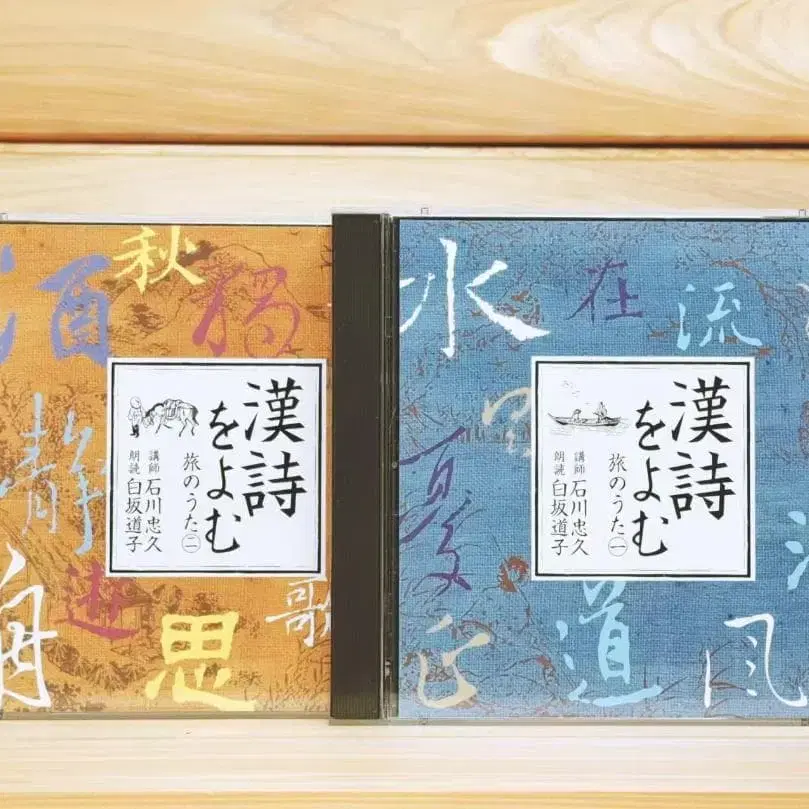 秋
酒
獨
静
遊
思
歌
漢詩
をよむ
旅のうた㊁
講師 石川忠久
朗読 白坂道子
水
在
流
夏
道
風
漢詩
をよむ
旅のうた㊀
講師 石川忠久
朗読 白坂道子